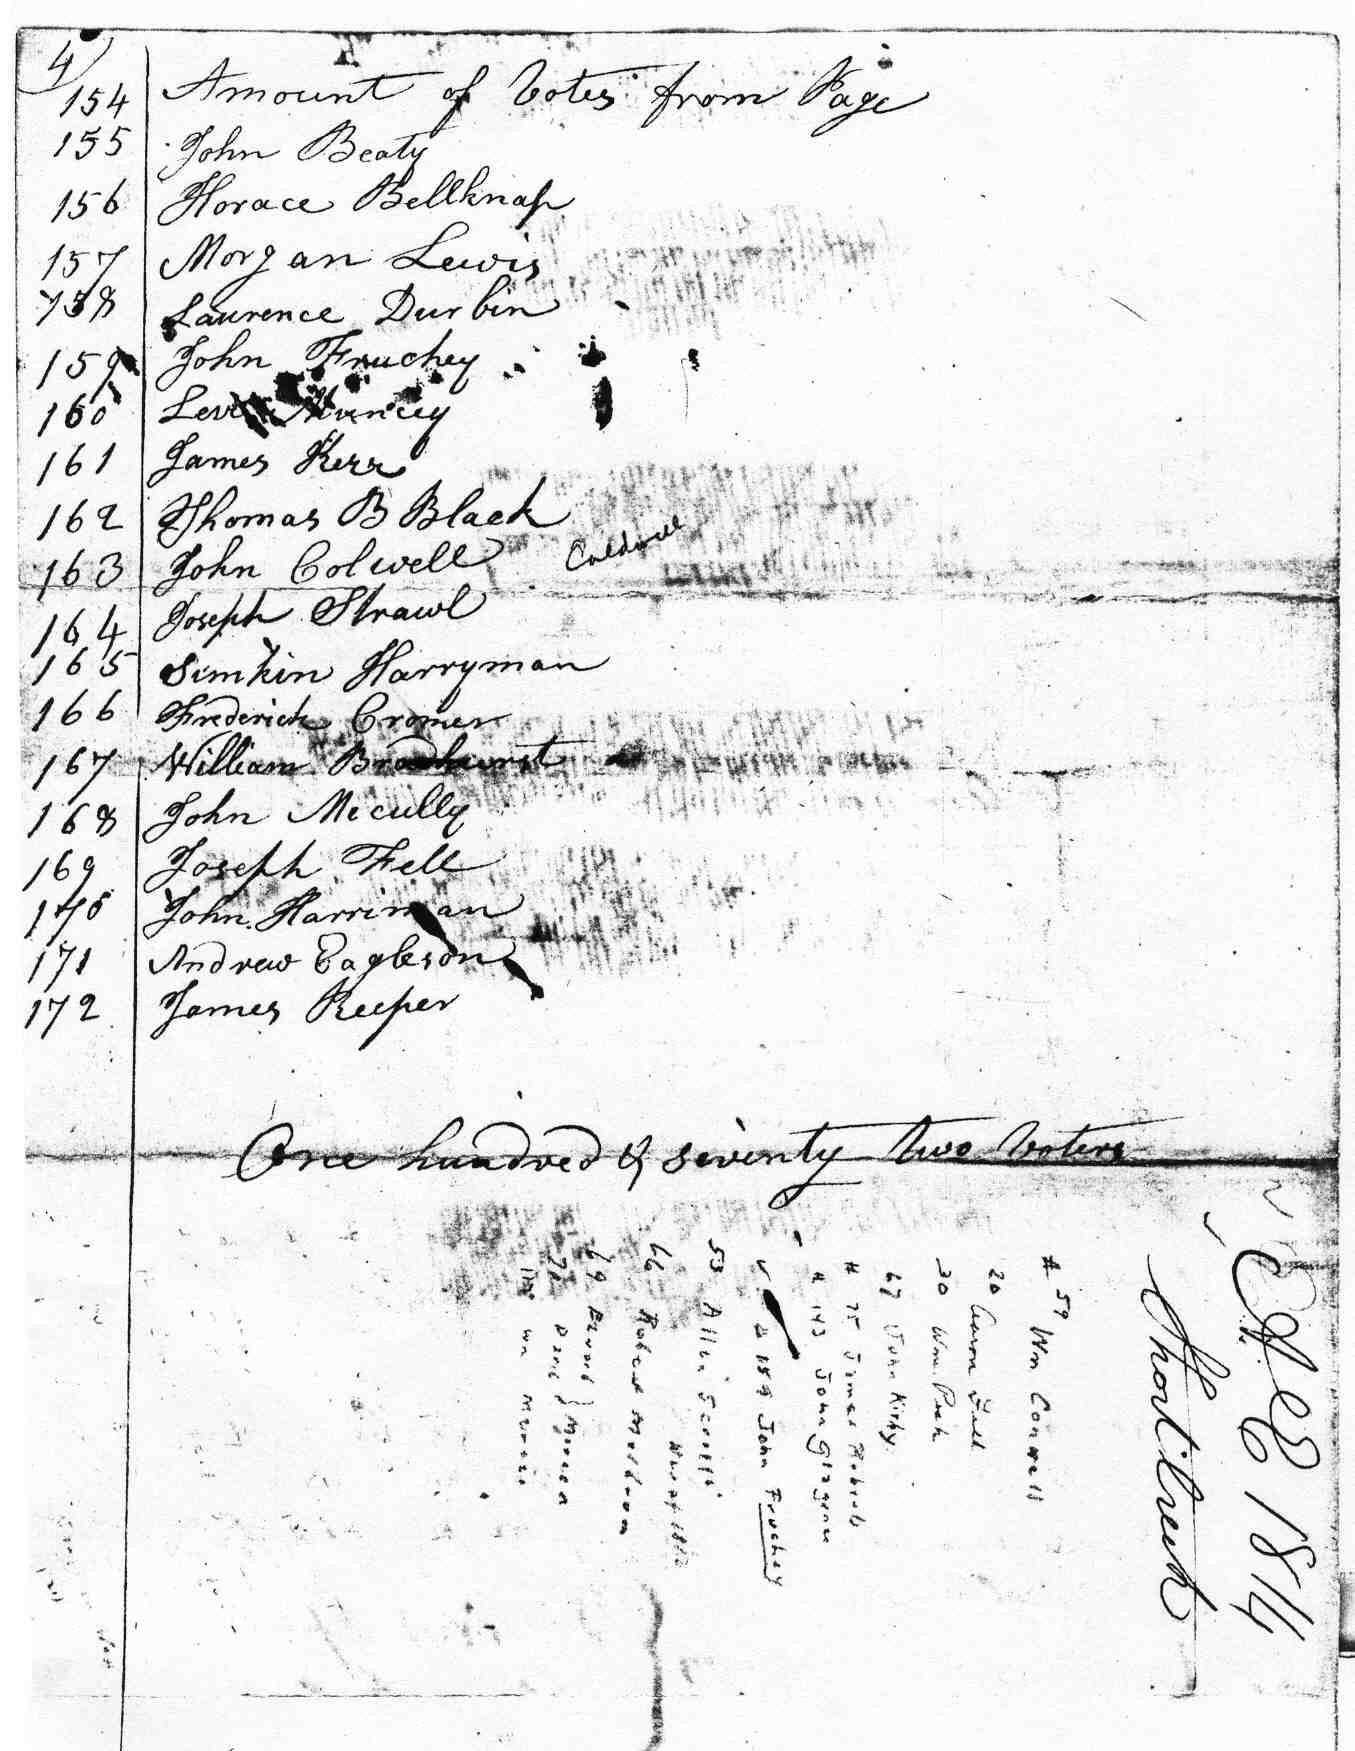 4
154 Amount of Votes from Page
155 John Beaty
156 Horace Bellknap
157 Morgan Lewis
158 Laurence Durbin
159 John Fruchey
160 Levi Muncey
161 James Kerr
162 Thomas B Black
163 John Colwell Caldwell
164 Joseph Strawl
165 Simkin Harryman
166 Frederick Cromer
167 William Broadhurst
168 John Mccully
169 Joseph Fell
170 John Harriman
171 Andrew Eagleson
172 James Reeper
One hundred & seventy two Voters
1814
Short Creek
# 59 Wm Conwell
20 Aaron Fell
30 Wm.
67 John Kirby
# 75 James Roberts
# 143 John
159 John Fruchey
53 Allin
66 Robert
69
70